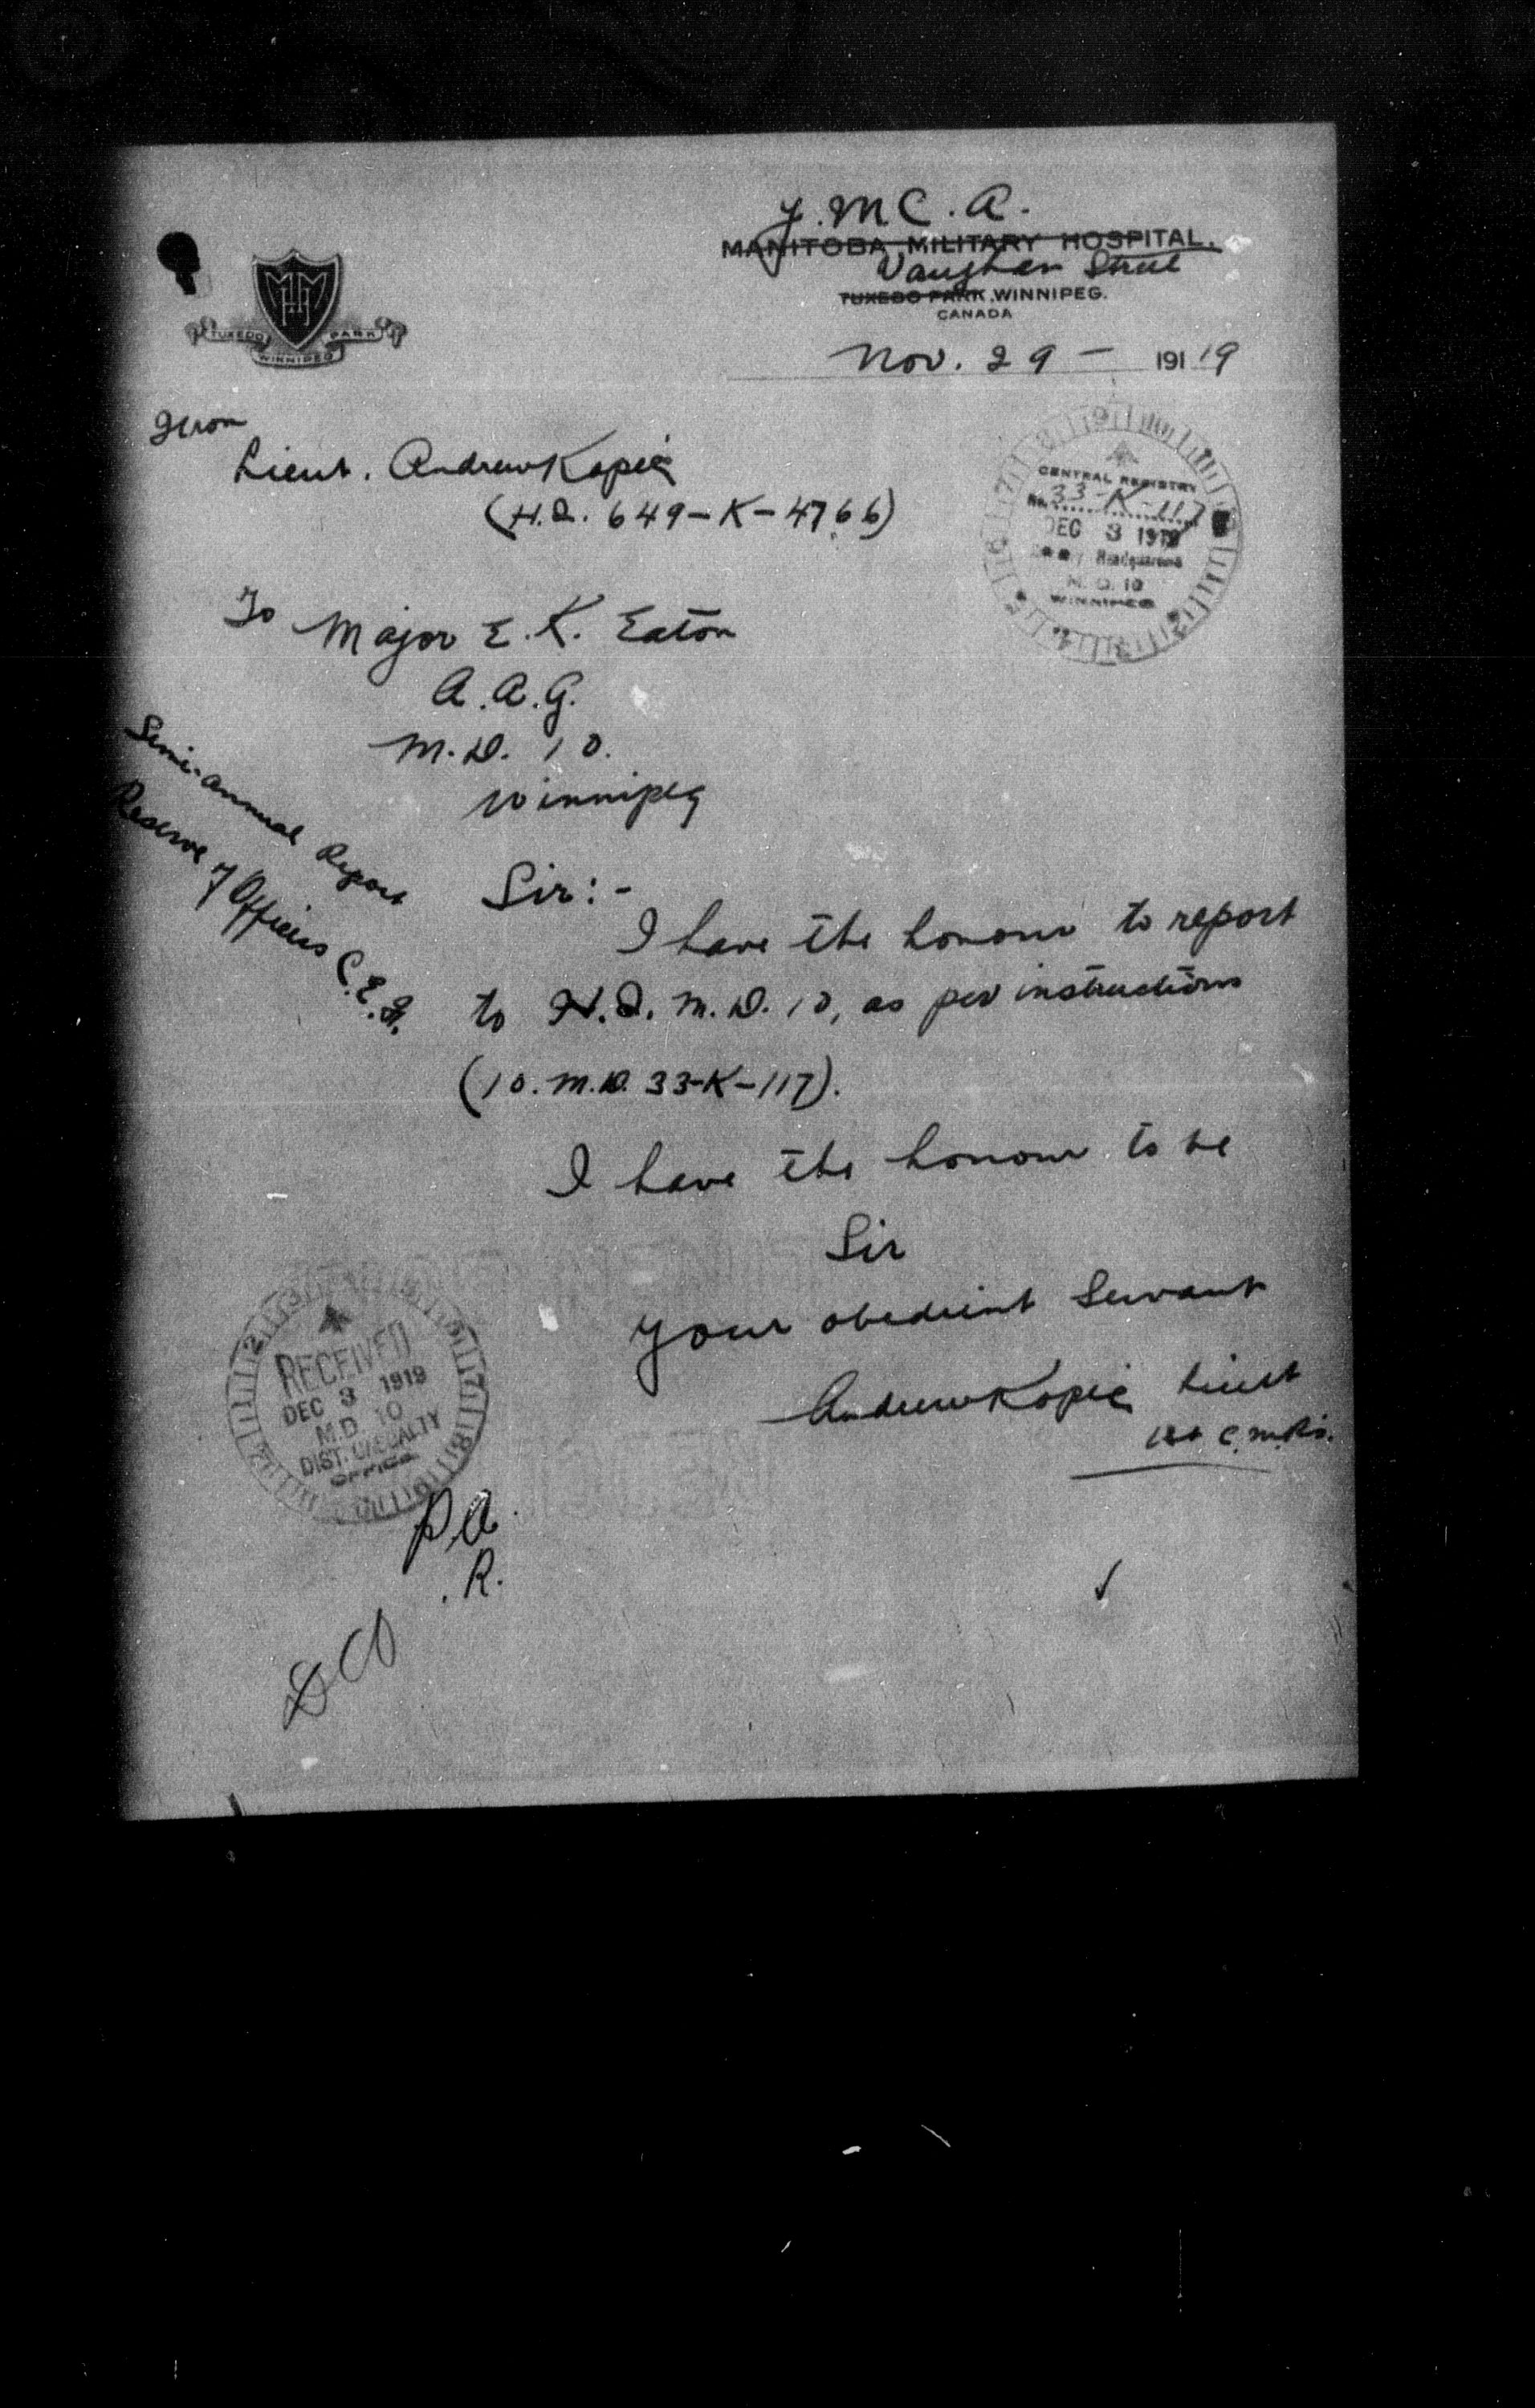 Y.M.C.A.
MANITOBA MILITARY HOSPITAL.
Vaughan Street
TUXEDO PARK, WINNIPEG.
CANADA
TUXEDO PARK
WINNIPEG
Nov. 29 - 1919
From
Lieut. Andrew Kopie
(H.Q. 649-K-4766)
CENTRAL REGISTRY
No. 33-K-117
DEC 3 1919
Headquarters
M. D. 10
WINNIPEG
To Major E. K. Eaton
A.A.G.
M.D. 10.
Winnipeg
Semi-annual Report
Reserve of Officers C.E.F.
Sir:-
I have the honour to report
to H.Q. M.D. 10, as per instructions
(10. M.D. 33-K-117).
I have the honour to be
Sir
Your obedient Servant
Andrew Kopie Lieut
1st C.M.R's.
RECEIVED
DEC 3 1919
M.D. 10
DIST. CASUALTY
OFFICE
PA
.R.